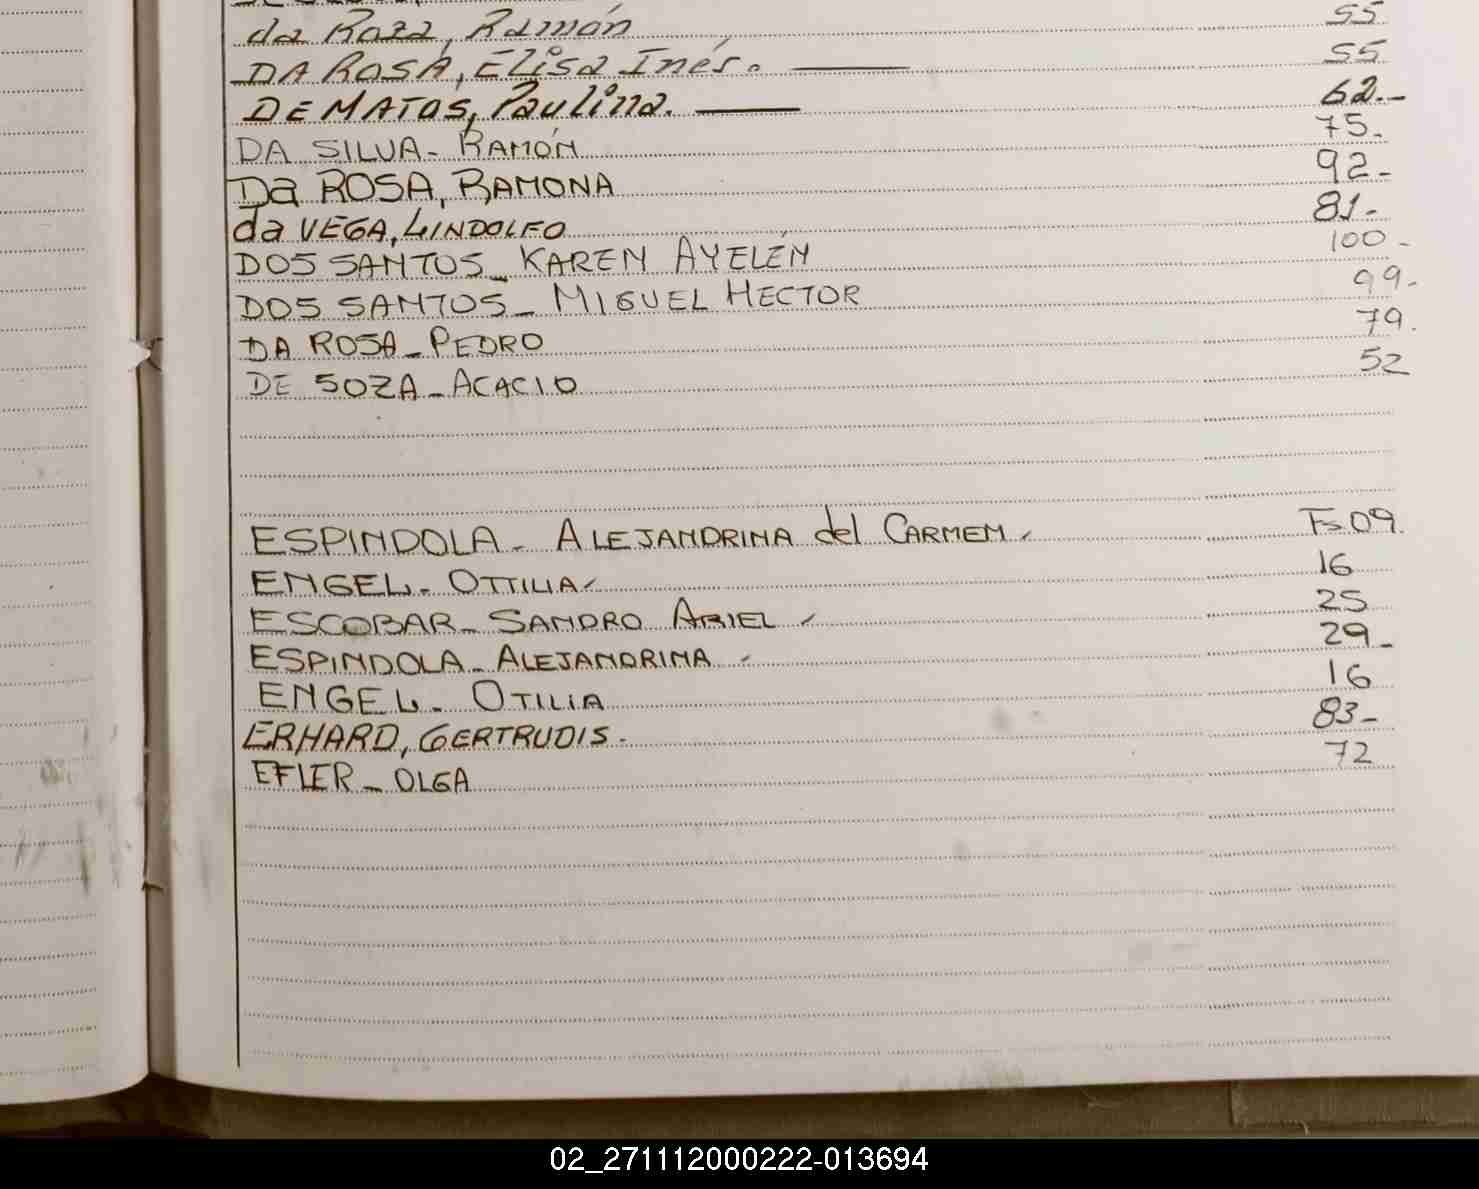 da Roza, Ramón 55
DA ROSA, Elisa Inés. 55
DE MATOS, Paulina. 62.-
DA SILVA - RAMÓN 75.
Da ROSA, RAMONA 92-
da VEGA, LINDOLFO 81-
DOS SANTOS - KAREN AYELÉN 100-
DOS SANTOS - MIGUEL HECTOR 99-
DA ROSA - PEDRO 79.
DE SOZA - ACACIO 52
ESPINDOLA - ALEJANDRINA del CARMEM Fs 09.
ENGEL - OTTILIA 16
ESCOBAR - SANDRO ARIEL 25
ESPINDOLA - ALEJANDRINA 29-
ENGEL - OTILIA 16
ERHARD, GERTRUDIS - 83-
EFLER - OLGA 72
02_271112000222-013694